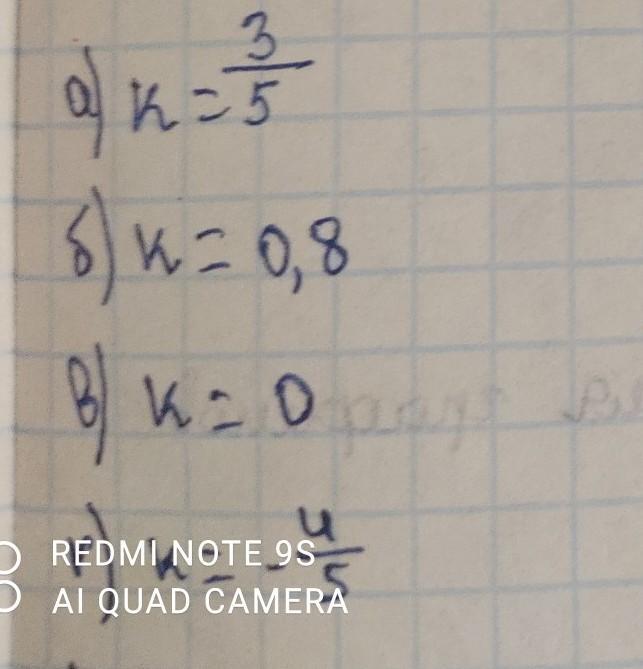 а) k = 3/5
б) k = 0,8
в) k = 0
г) k = - 4/5
REDMI NOTE 9S
AI QUAD CAMERA